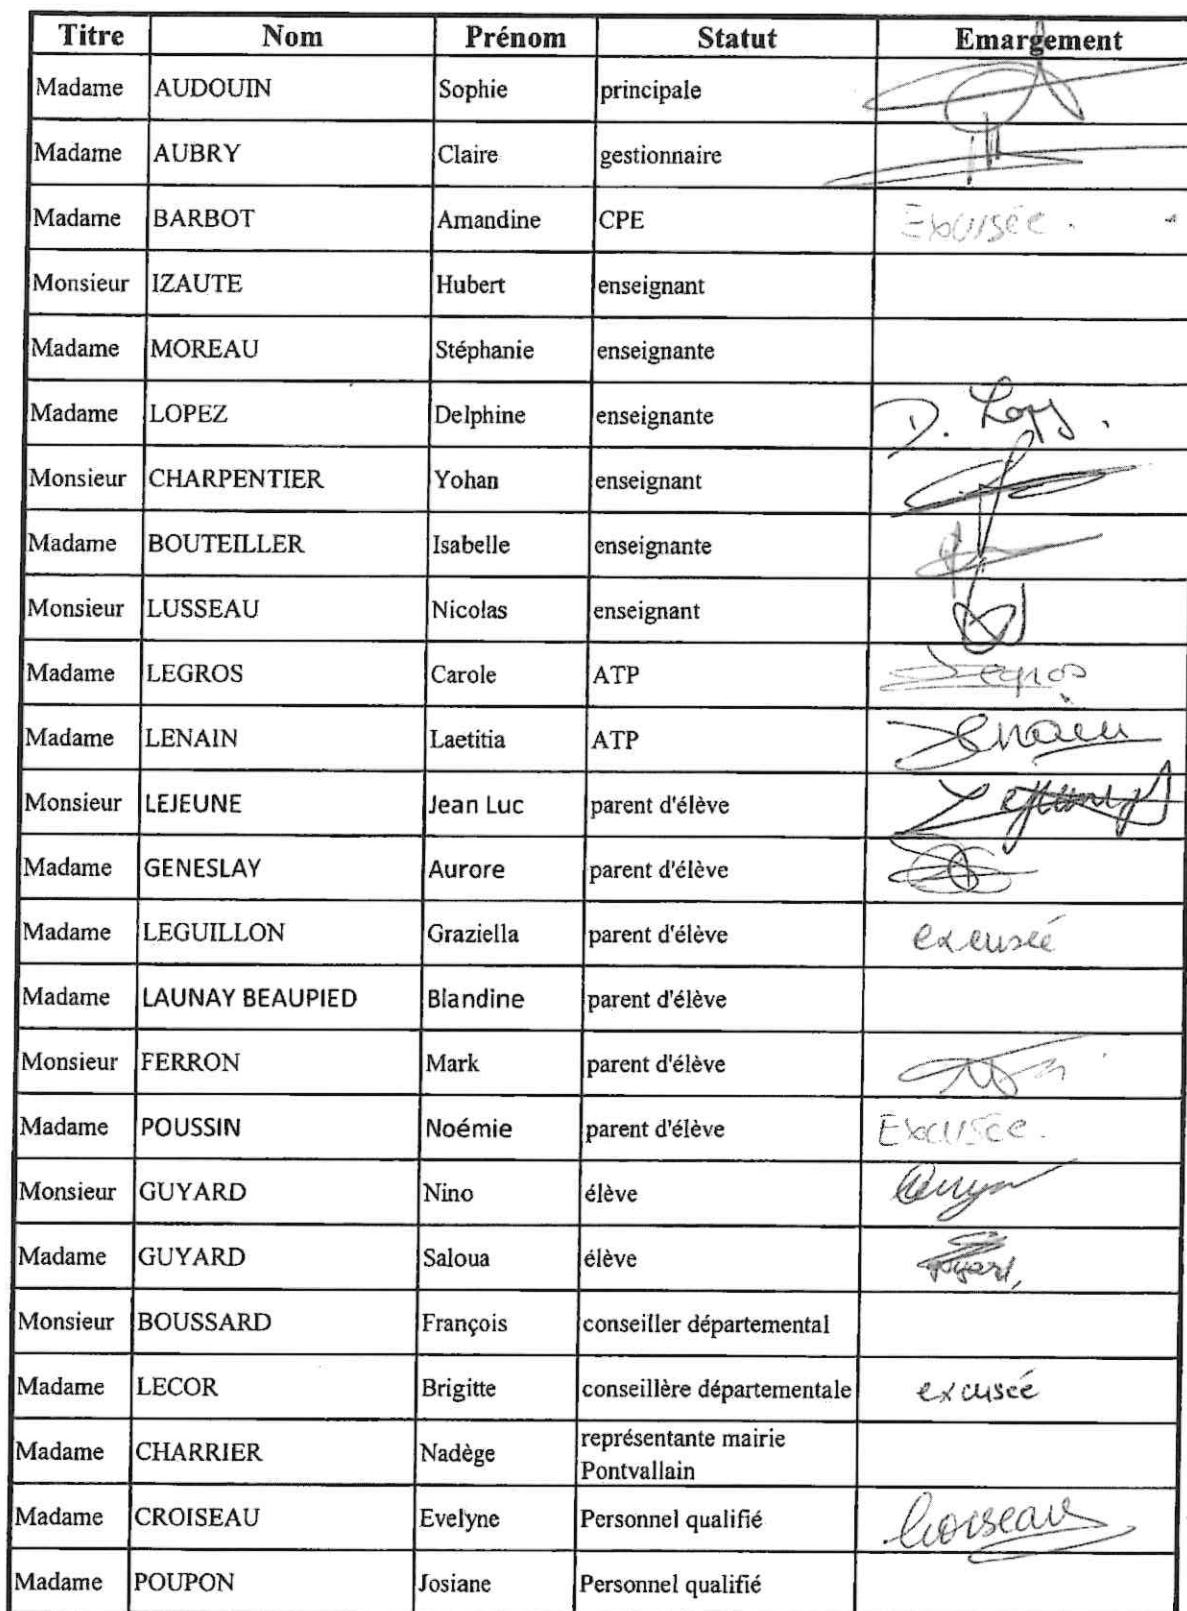 Titre Nom Prénom Statut Emargement
Madame AUDOUIN Sophie principale
Madame AUBRY Claire gestionnaire
Madame BARBOT Amandine CPE Excusée.
Monsieur IZAUTE Hubert enseignant
Madame MOREAU Stéphanie enseignante
Madame LOPEZ Delphine enseignante D. Lopez.
Monsieur CHARPENTIER Yohan enseignant
Madame BOUTEILLER Isabelle enseignante
Monsieur LUSSEAU Nicolas enseignant
Madame LEGROS Carole ATP Legros
Madame LENAIN Laetitia ATP Lenain
Monsieur LEJEUNE Jean Luc parent d'élève Lejeune
Madame GENESLAY Aurore parent d'élève
Madame LEGUILLON Graziella parent d'élève excusée
Madame LAUNAY BEAUPIED Blandine parent d'élève
Monsieur FERRON Mark parent d'élève
Madame POUSSIN Noémie parent d'élève Excusée.
Monsieur GUYARD Nino élève
Madame GUYARD Saloua élève
Monsieur BOUSSARD François conseiller départemental
Madame LECOR Brigitte conseillère départementale excusée
Madame CHARRIER Nadège représentante mairie
Pontvallain
Madame CROISEAU Evelyne Personnel qualifié Croiseau
Madame POUPON Josiane Personnel qualifié